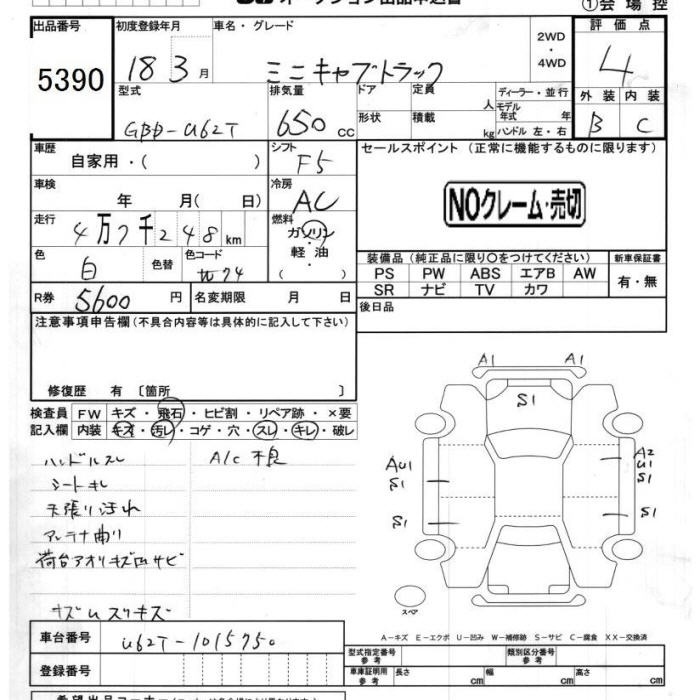 ①会場控
出品番号 初度登録年月 車名・グレード 2WD・4WD 評価点
5390 18 3月 ミニキャブトラック 4
型式 排気量 ドア 定員 人 ディーラー・並行 外装 内装
GBD-U62T 650cc 形状 積載 kg モデル年式 年 ハンドル 左・右 B C
車歴 自家用・( ) シフト F5 セールスポイント (正常に機能するものに限ります)
車検 年 月( 日) 冷房 AC
NOクレーム・売切
走行 4万7千248km 燃料 ガソリン・軽油 ( )
色 白 色替 色コード W74
装備品 (純正品に限り〇をつけてください) 新車保証書
PS PW ABS エアB AW 有・無
SR ナビ TV カワ
R券 5600円 名変期限 月 日 後日品
注意事項申告欄(不具合内容等は具体的に記入して下さい)
修復歴 有 〔箇所 〕
検査員 FW キズ・飛石・ヒビ割・リペア跡・×要
記入欄 内装 キズ・汚レ・コゲ・穴・スレ・キレ・破レ
ハンドルスレ A/C不良
シートキレ
天張り汚れ
アンテナ曲り
荷台アオリキズ凹サビ
キズUスリキズ
A1 A1
S1
AU1 A2
U1
S1 S1
S1 S1
スペア
A-キズ E-エクボ U-凹み W-補修跡 S-サビ C-腐食 XX-交換済
車台番号 U62T-1015750 型式指定番号 参考 類別区分番号 参考
登録番号 車庫証明用 参考 長さ cm 幅 cm 高さ cm